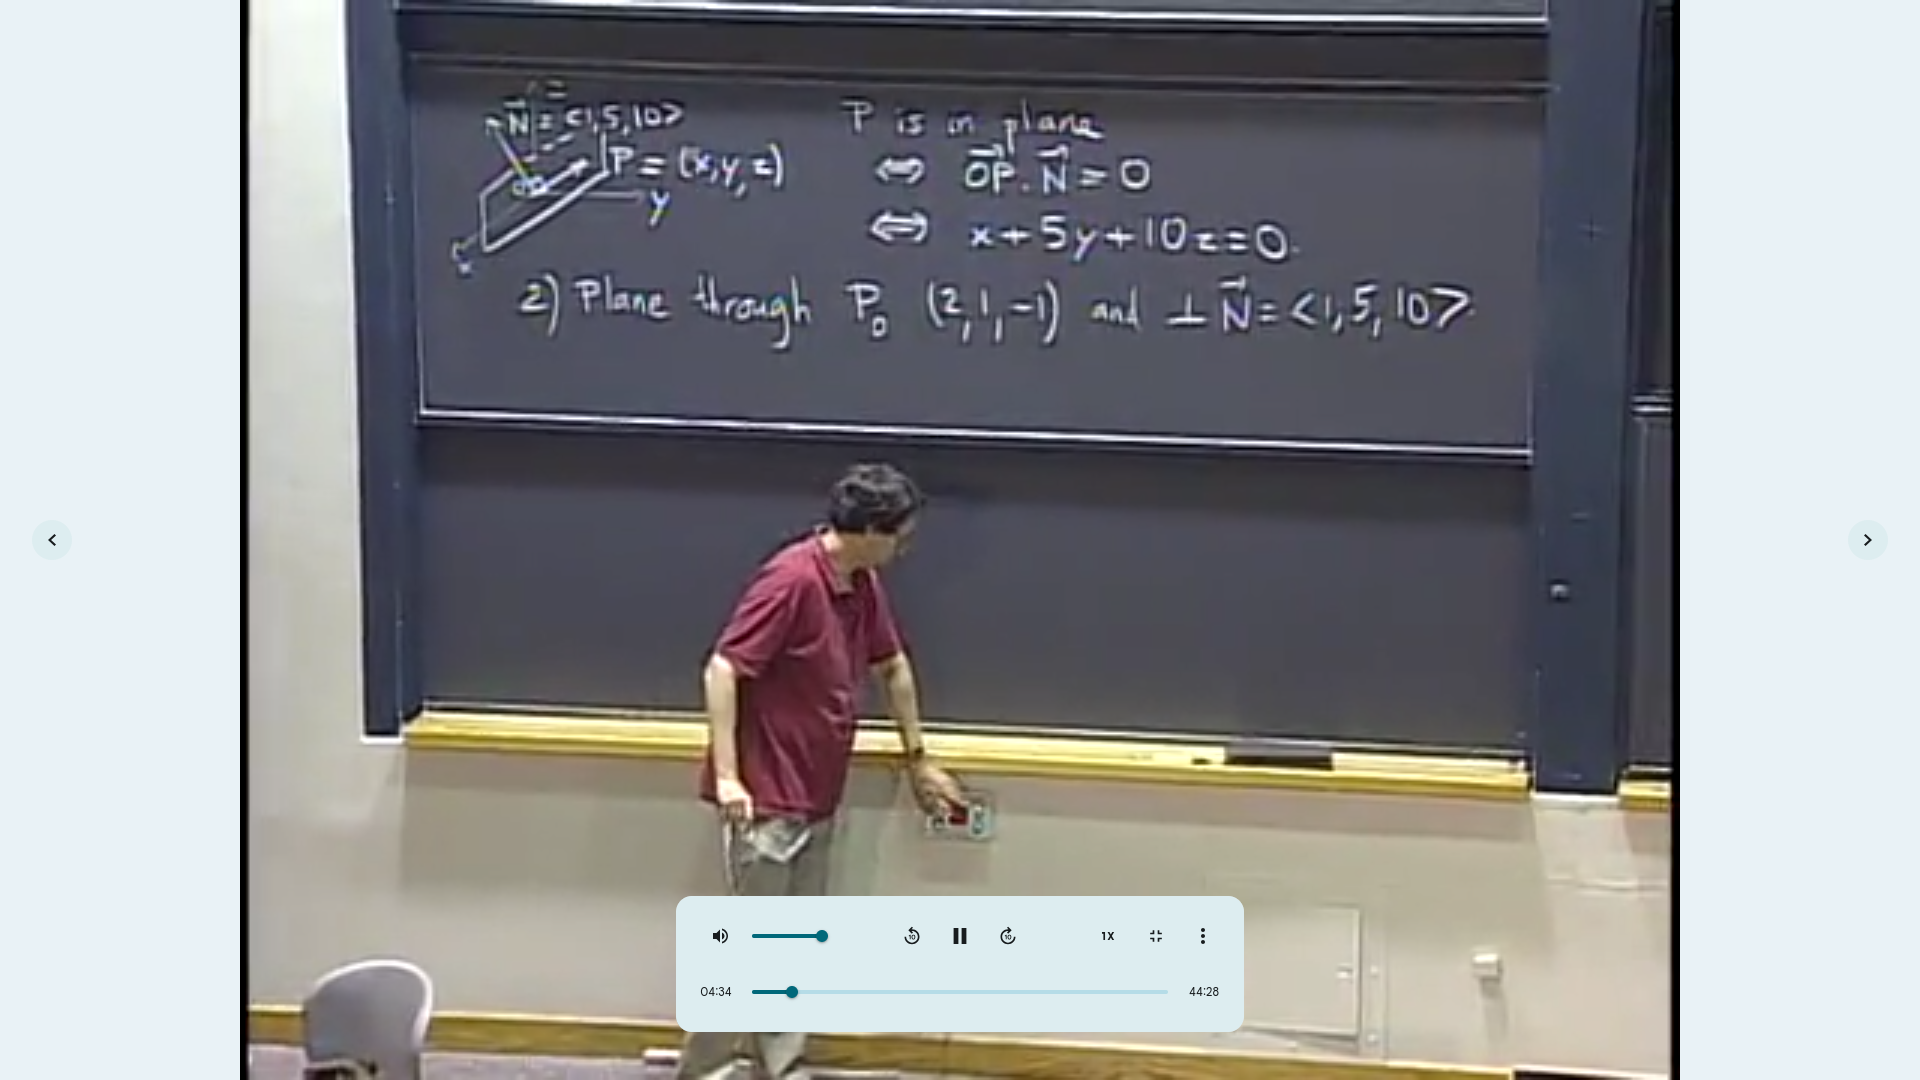 z
N = <1,5,10>
P = (x,y,z)
O
y
x
P is in plane
⇔ OP · N = 0
⇔ x + 5y + 10z = 0.
2) Plane through P₀ (2,1,-1) and ⊥ N = <1,5,10>.
10
10
1X
04:34
44:28